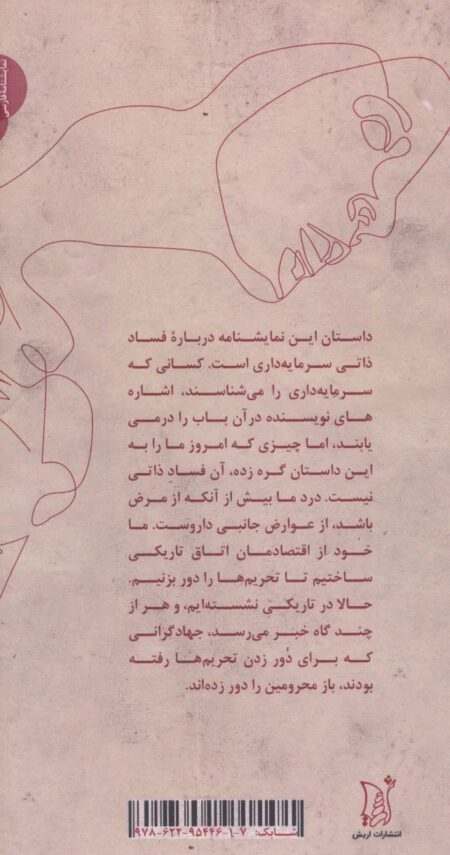 نمایشنامه فارسی
داستان این نمایشنامه دربارهٔ فساد
ذاتی سرمایه‌داری است. کسانی که
سرمایه‌داری را می‌شناسند، اشاره
های نویسنده درآن باب را درمی
یابند، اما چیزی که امروز ما را به
این داستان گره زده، آن فسادِ ذاتی
نیست. درد ما بیش از آنکه از مرض
باشد، از عوارض جانبی داروست. ما
خود از اقتصادمان اتاق تاریکی
ساختیم تا تحریم‌ها را دور بزنیم.
حالا در تاریکی نشسته‌ایم، و هر از
چند گاه خبر می‌رسد، جهادگرانی
که برای دُور زدن تحریم‌ها رفته
بودند، باز محرومین را دور زده‌اند.
شابک: ۷-۱-۹۵۴۴۶-۶۲۲-۹۷۸
انتشارات اریش